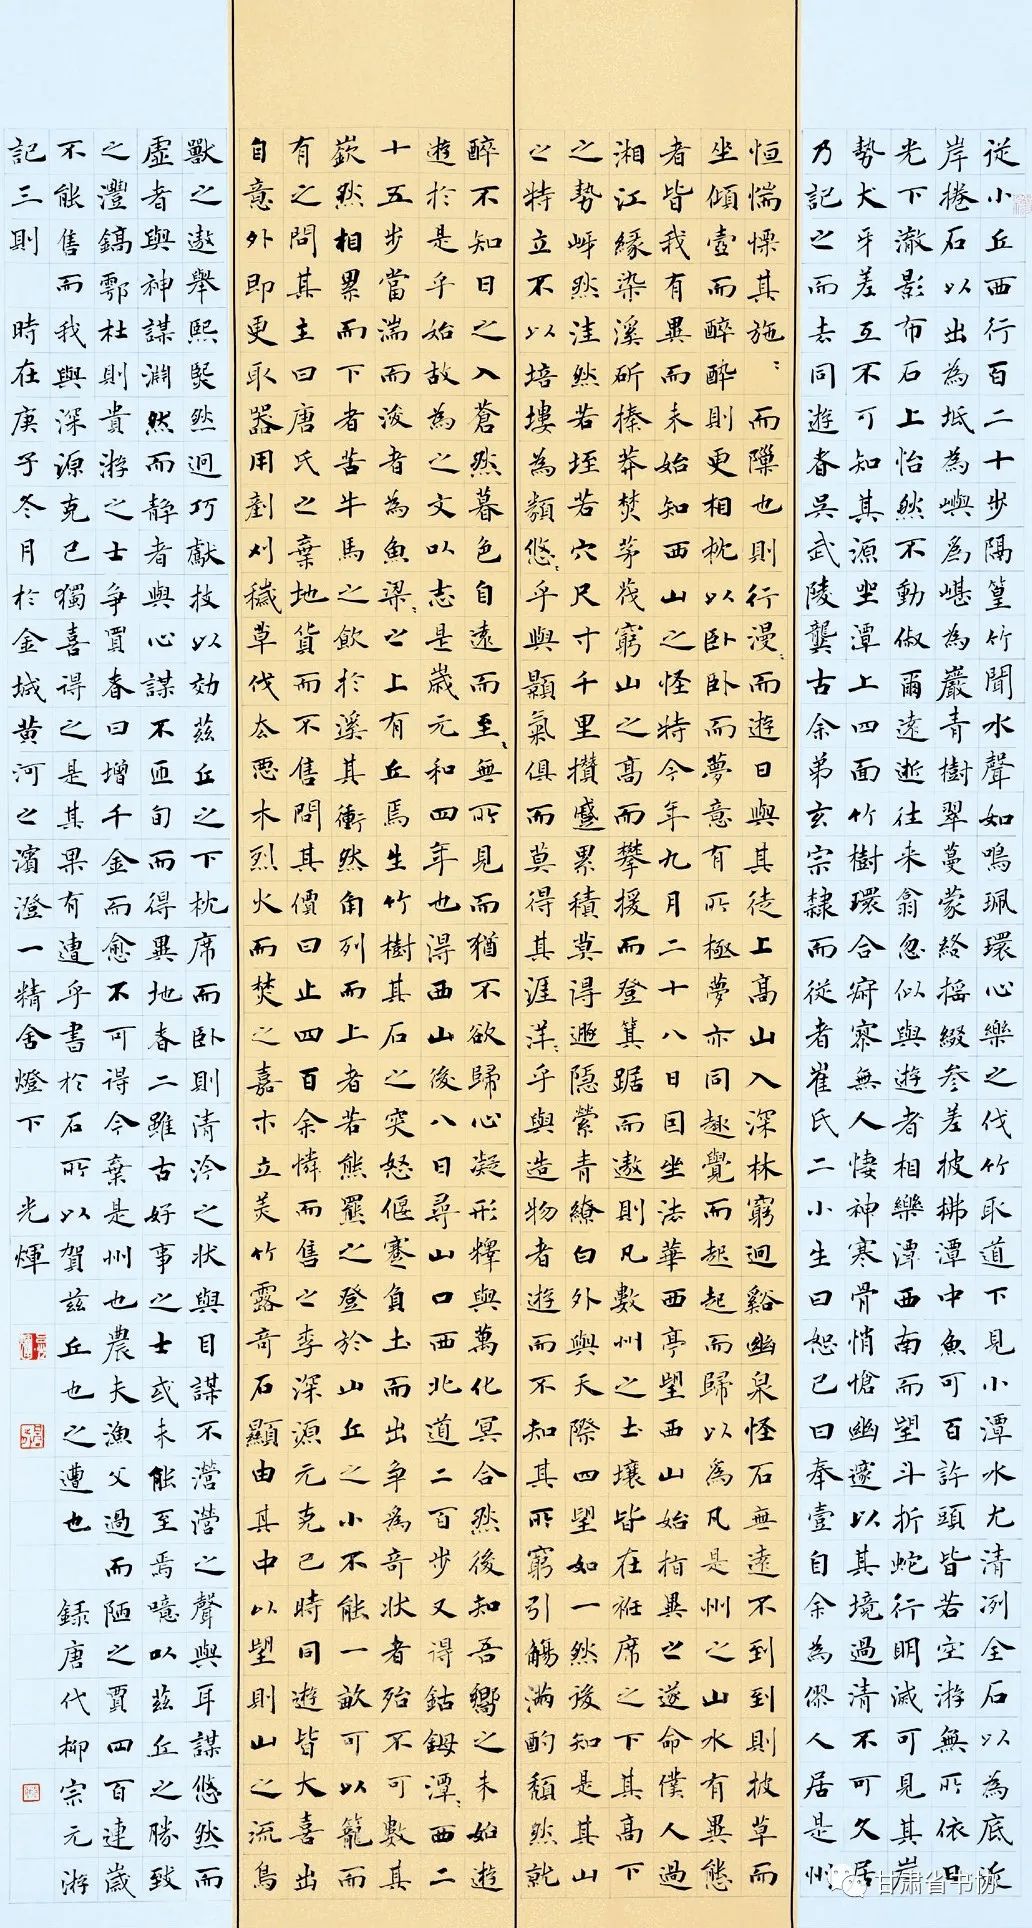 從小丘西行百二十步隔篁竹聞水聲如鳴珮環心樂之伐竹取道下見小潭水尤清冽全石以為底近
岸捲石以出為坻為嶼為嵁為巖青樹翠蔓蒙絡搖綴參差披拂潭中魚可百許頭皆若空游無所依日
光下澈影布石上怡然不動俶爾遠逝往來翕忽似與遊者相樂潭西南而望斗折蛇行明滅可見其岸
勢犬牙差互不可知其源坐潭上四面竹樹環合寂寥無人悽神寒骨悄愴幽邃以其境過清不可久居
乃記之而去同遊者吳武陵龔古余弟玄宗隸而從者崔氏二小生曰恕已曰奉壹自余為僇人居是州
恒惴慄其施〻而隟也則行漫〻而遊日與其徒上高山入深林窮迴谿幽泉怪石無遠不到到則披草而
坐傾壺而醉醉則更相枕以臥臥而夢意有所極夢亦同趣覺而起起而歸以為凡是州之山水有異態
者皆我有異而未始知西山之怪特今年九月二十八日因坐法華西亭望西山始指異之遂命僕人過
湘江緣染溪斫榛莽焚茅茷窮山之高而攀援而登箕踞而遨則凡數州之土壤皆在衽席之下其高下
之勢岈然洼然若垤若穴尺寸千里攢蹙累積莫得遯隱縈青繚白外與天際四望如一然後知是其山
之特立不以培塿為類悠〻乎與顥氣俱而莫得其涯洋〻乎與造物者遊而不知其所窮引觴滿酌頹然就
醉不知日之入蒼然暮色自遠而至〻無所見而猶不欲歸心凝形釋與萬化冥合然後知吾嚮之未始遊
遊於是乎始故為之文以志是歲元和四年也得西山後八日尋山口西北道二百步又得鈷鉧潭〻西二
十五步當湍而浚者為魚梁〻之上有丘焉生竹樹其石之突怒偃蹇負土而出爭為奇狀者殆不可數其
嶔然相累而下者若牛馬之飲於溪其衝然角列而上者若熊羆之登於山丘之小不能一畝可以籠而
有之問其主曰唐氏之棄地貨而不售問其價曰止四百余憐而售之李深源元克已時同遊皆大喜出
自意外即更取器用剷刈穢草伐去惡木烈火而焚之嘉木立美竹露奇石顯由其中以望則山之流鳥
獸之遨舉熙熙然迴巧獻技以効茲丘之下枕席而臥則清泠之狀與目謀不瀯瀯之聲與耳謀悠然而
虛者與神謀淵然而靜者與心謀不匝旬而得異地春二雖古好事之士或未能至焉噫以茲丘之勝致
之灃鎬鄠杜則貴游之士爭買春曰增千金而愈不可得今棄是州也農夫漁父過而陋之賈四百連歲
不能售而我與深源克已獨喜得之是其果有遭乎書於石所以賀茲丘也之遭也 錄唐代柳宗元游
記三則 時在庚子冬月於金城黃河之濱澄一精舍燈下 光煇
甘肃省书协